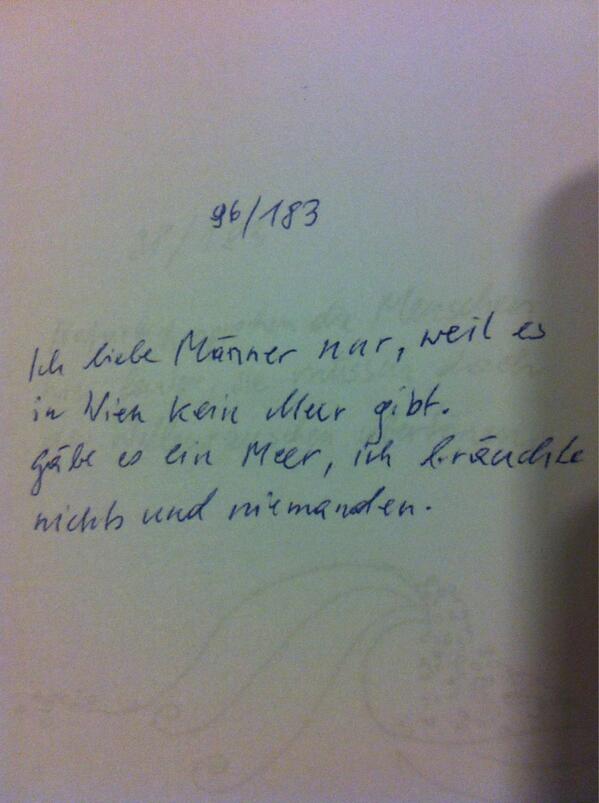 96/183
Ich liebe Männer nur, weil es
in Wien kein Meer gibt.
Gäbe es ein Meer, ich bräuchte
nichts und niemanden.